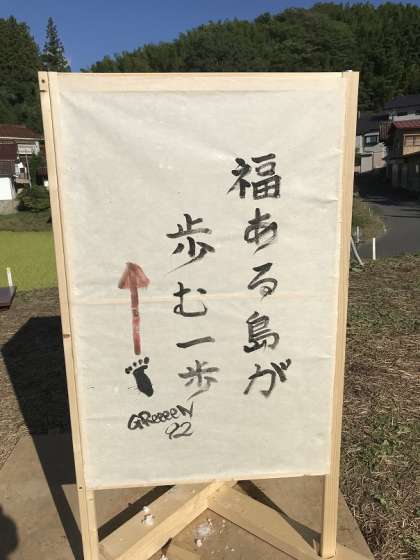 福ある島が
歩む一歩
GReeeeN
92